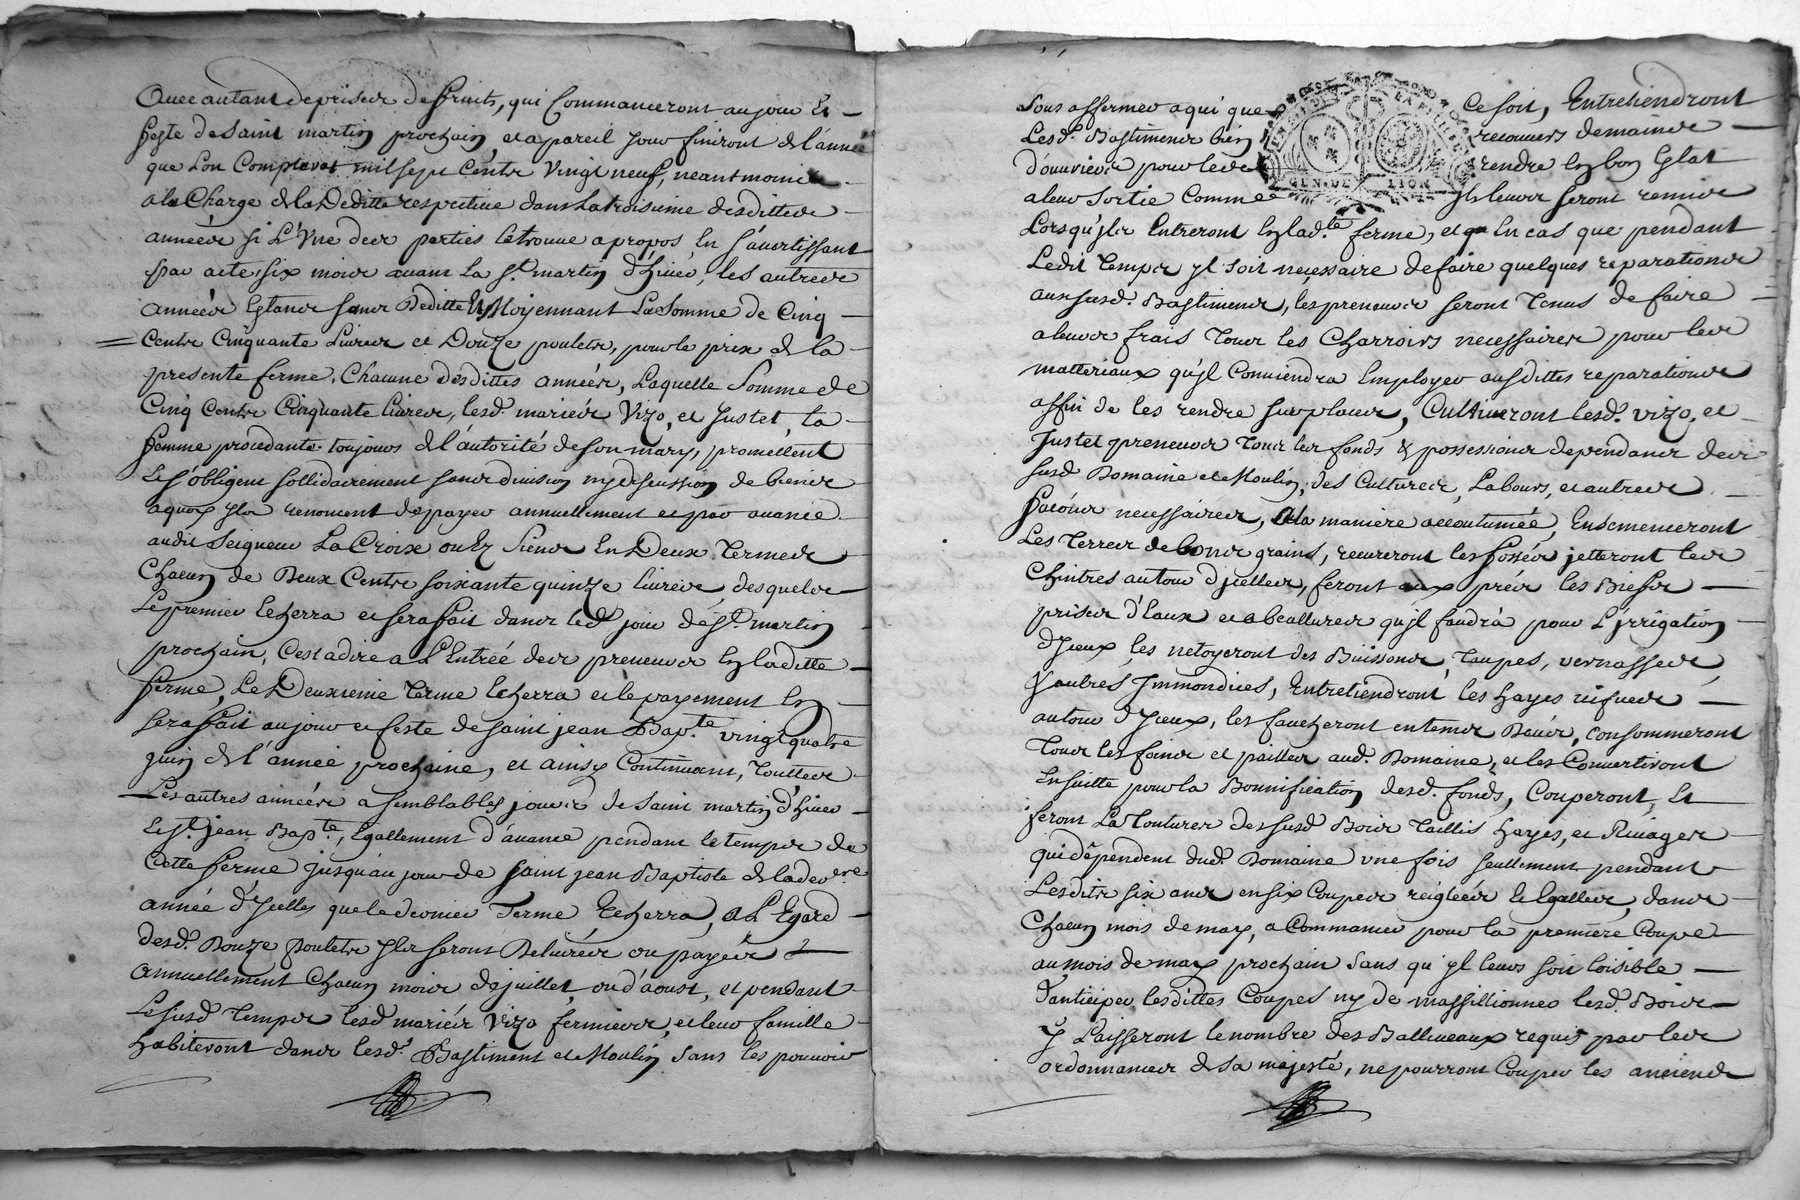 Avec autant de prises de fruits, qui Commanceront au jour Et
feste de saint martin prochain, et a pareil jour finiront de l'année
que l'on Comptera mil sept Cents Vingt neuf, neantmoins
a la Charge de la Deditte respective dans la troisieme desdittes
années si L'Une des parties le trouve a propos, En s'avertissant
par acte six mois avant La St. martin d'hiver, les autres
années Estants sans Deditte Et Moyennant La Somme de Cinq
Cents Cinquante Livres et Douze poulets, pour le prix de la
presente ferme, Chacune desdittes années, Laquelle Somme de
Cinq Cents Cinquante livres, lesd. mariés Vizo, et Justet, la
femme procedante toujours de l'autorité de son mary, promettent
Et s'obligent sollidairement sans division ny discussion de biens
a quoy ils renoncent de payer annuellement et par avance
audit Seigneur La Croix ou Ez Siens En Deux Termes
Chacun de Deux Cents soixante quinze livres, desquels
Le premier Echerra et sera fait dans led. jour de St. martin
prochain, C'est a dire a L'Entrée des preneurs En laditte
ferme, Le Deuxieme terme Echerra et le payement En
sera fait au jour et feste de saint jean Bapte. vingt quatre
juin de l'année prochaine, et ainsy Continuant, Touttes
Les autres années a semblables jours de saint martin d'hiver
Et St. jean Bapte., Egallement d'avance pendant le temps de
Cette ferme jusqu'au jour de saint jean Baptiste de la dernre.
année d'Icelles que le dernier Terme, Echerra, A L'Egard
desd. Douze poulets Ils seront Delivrés ou payés
Annuellement Chacun mois de juillet, ou d'aoust, et pendant
Le susd. temps lesd. mariés Vizo fermiers, et leur famille
habiteront dans lesd. Bastiment et Moulin sans les pouvoir
sous affermer a qui que Ce soit, Entretiendront
Lesd. Bastiments bien recouvers de mains
d'ouvrier pour les rendre En bon Estat
a leur sortie Comme Ils leurs seront remis
Lorsqu'ils Entreront En ladte. ferme, et En cas que pendant
Ledit temps Il soit necessaire de faire quelques reparations
aux susd. Bastiments, les preneurs seront Tenus de faire
a leurs frais tous les Charrois necessaires pour les
matteriaux qu'Il Conviendra Employer ausdittes reparations
affin de les rendre sur places, Cultiveront lesd. vizo, et
Justet preneurs tous les fonds & possessions dependants des
susd. Domaine et Moulin, des Cultures, Labours, et autres
façons necessaires, A la maniere accoutumée, Ensemenceront
Les Terres de bons grains, recureront les fossés jetteront les
Chintres autour d'jcelles, feront aux prés les Biefs
prises d'Eaux et abeallures qu'Il faudra pour L'Irrigation
d'Iceux, les netoyeront des Buissons, taupes, vernasses,
& autres Immondices, Entretiendront les hayes vifves
autour d'Iceux, les faucheront en tems Deues, consommeront
tous les foins et pailles aud. Domaine, et les Convertiront
Ensuitte pour la Bonnification desd. fonds, Couperont, Et
feront La tontures des susd. Bois Taillis hayes, et Rivages
qui dependent dud. Domaine une fois seullement pendant
Lesdits six ans en six Coupes reiglées Et Egalles, dans
Chacun mois de may, a Commancer pour la premiere Coupe
au mois de may prochain sans qu'Il leurs soit loisible
d'anticiper lesdittes Coupes ny de massillionner lesd. Bois
Y Laisseront le nombre des Balliveaux requis par les
ordonnances de sa majesté, ne pourront Couper les anciens
GEN. DE LION